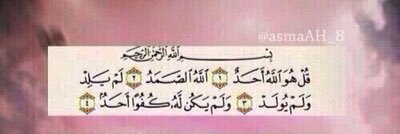 @asmaAH_8
بِسْمِ اللَّهِ الرَّحْمَٰنِ الرَّحِيمِ
قُلْ هُوَ اللَّهُ أَحَدٌ ١ اللَّهُ الصَّمَدُ ٢ لَمْ يَلِدْ
وَلَمْ يُولَدْ ٣ وَلَمْ يَكُن لَّهُ كُفُوًا أَحَدٌ ٤